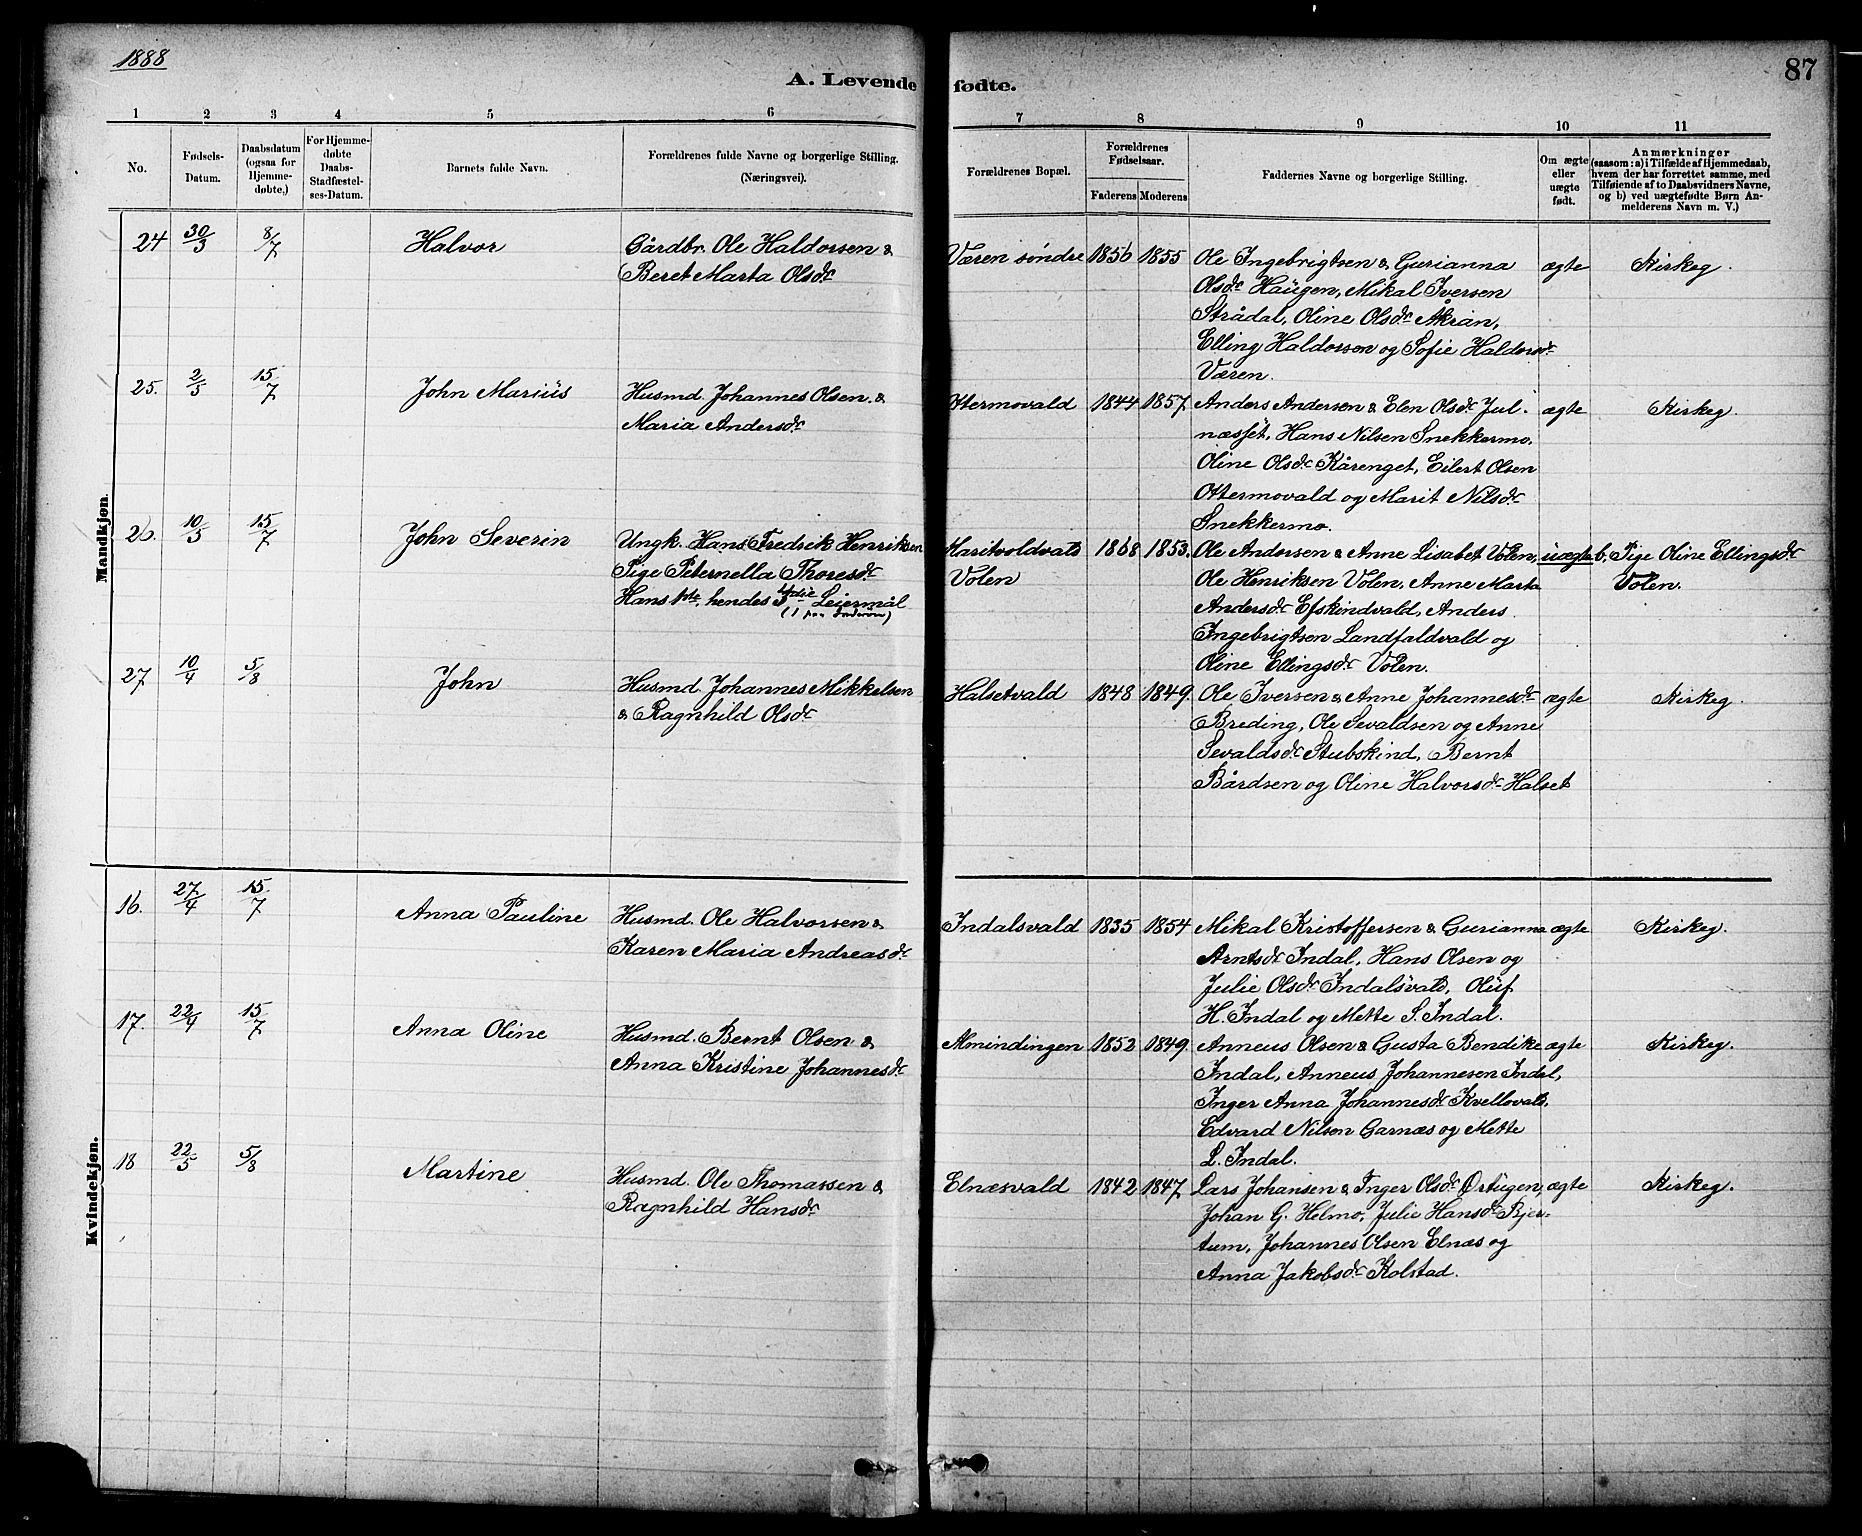 1888
87
A. Levende fødte.
1 2 3 4 5 6 7 8 9 10 11
No.
Fødsels-
Datum.
Daabsdatum
(ogsaa for
Hjemme-
døbte,)
For Hjemme-
døbte
Daabs-
Stadfæstel-
ses-Datum.
Barnets fulde Navn.
Forældrenes fulde Navne og borgerlige Stilling.
(Næringsvei).
Forældrenes Bopæl.
Forældrenes
Fødselsaar.
Faderens Moderens
Faddernes Navne og borgerlige Stilling.
Om ægte
eller
uægte
født.
Anmærkninger
(saasom: a) i Tilfælde af Hjemmedaab,
hvem der har forrettet samme, med
Tilføiende af to Daabsvidners Navne,
og b) ved uægtefødte Børn An-
melderens Navn m. V.)
Mandkjøn.
24 30/3 8/7 Halvor
Gårdbr. Ole Haldorsen &
Beret Marta Olsdr
Væren søndre 1856 1855
Ole Ingebrigtsen & Gurianna
Olsdr Haugen, Mikal Iversen
Strådal, Oline Olsdr Åkran,
Elling Haldorsen og Sofie Haldorsdr
Væren.
ægte Kirkeg.
25. 2/5 15/7 John Marius
Husmd. Johannes Olsen &
Maria Andersdr
Ottermovald 1844 1857
Anders Andersen & Elen Olsdr Jul-
næsset, Hans Nilsen Snekkermo,
Oline Olsdr Kårenget, Eilert Olsen
Ottermovald og Marit Nilsdr
Snekkermo.
ægte Kirkeg.
26. 10/5 15/7 John Severin
Ungk. Hans Fredrik Henriksen
Pige Peternella Thoresdr
Hans 1ste, hendes Leiermål
Volen
1868 1853.
Ole Andersen & Anne Lisabet Volen,
Ole Henriksen Volen, Anne Marta
Andersdr Efskindvald, Anders
Ingebrigtsen Landfaldvald og
Oline Ellingsdr Volen.
uægte b. Pige Oline Ellingsdr
Volen.
27 10/4 5/8 John
Husmd. Johannes Mikkelsen
& Ragnhild Olsdr
Halsetvald 1848 1849.
Ole Iversen & Anne Johannesdr
Breding, Ole Sevaldsen og Anne
Sevaldsdr Stubskind, Bernt
Bårdsen og Oline Halvorsdr Halset
ægte Kirkeg.
Kvindekjøn.
16. 27/4 15/7 Anna Pauline
Husmd. Ole Halvorsen &
Karen Maria Andreasdr
Indalsvald 1835 1854
Mikal Kristoffersen & Gurianna
Arntsdr Indal, Hans Olsen og
Julie Olsdr Indalsvald, Oluf
H. Indal og Mette S. Indal.
ægte Kirkeg.
17. 22/4 15/7 Anna Oline
Husmd. Bernt Olsen &
Anna Kristine Johannesdr
Almindingen 1852 1849.
Anneus Olsen & Gusta Bendike
Indal, Anneus Johannesen Indal,
Inger Anna Johannesdr Kvellovald,
Edvard Nilsen Garnæs og Mette
L. Indal.
ægte Kirkeg.
18 22/5 5/8 Martine
Husmd. Ole Thomassen &
Ragnhild Hansdr
Elnæsvald 1842 1847
Lars Johansen & Inger Olsdr Ørtugen,
Johan G. Helmo, Julie Hansdr Bjer-
tum, Johannes Olsen Elnæs og
Anna Jakobsdr Kolstad.
ægte Kirkeg.